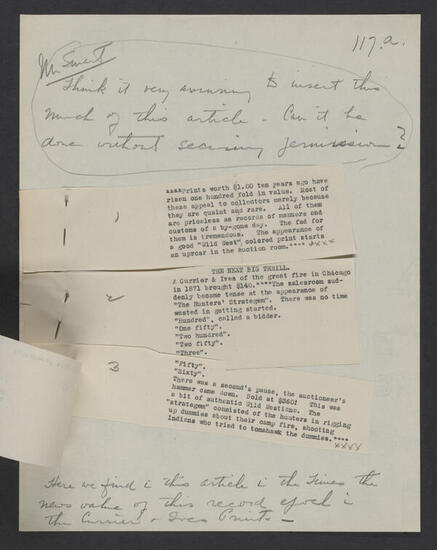 117.a.
Mr Swart
Think it very winning to insert this
much of this article - Can it be
done without securing permission?
****Prints worth $1.00 ten years ago have
risen one hundred fold in value. Most of
these appeal to collectors merely because
they are quaint and rare. All of them
are priceless as records of manners and
customs of a by-gone day. The fad for
them is tremendous. The appearance of
a good "Wild West" colored print starts
an uproar in the auction room.****
THE NEXT BIG THRILL.
A Currier & Ives of the great fire in Chicago
in 1871 brought $140.****The salesroom sud-
denly became tense at the appearance of
"The Hunters' Strategem". There was no time
wasted in getting started.
"Hundred", called a bidder.
"One fifty".
"Two hundred".
"Two fifty".
"Three".
2
3
"Fifty".
"Sixty".
There was a second's pause, the auctioneer's
hammer came down. Sold at $360! This was
a bit of authentic Wild Westiana. The
"strategem" consisted of the hunters in rigging
up dummies about their camp fire, shooting
Indians who tried to tomahawk the dummies.****
Here we find in this article in the Times the
news value of this record in
the Currier & Ives Prints -